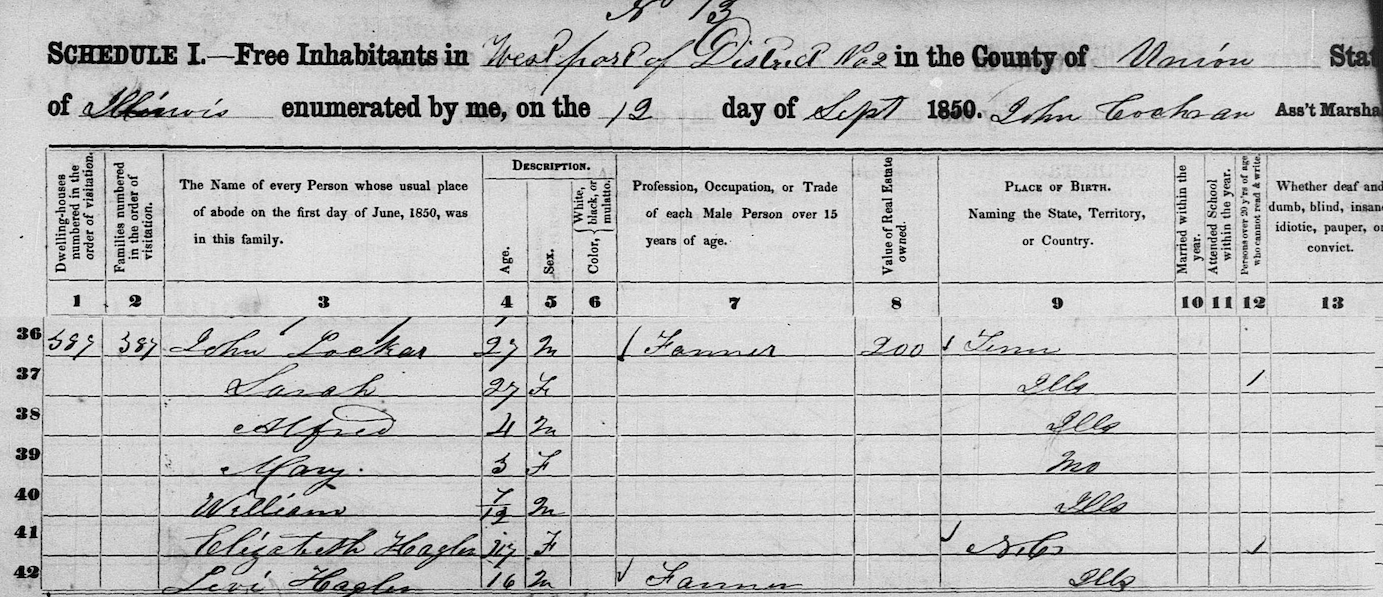 No 13
SCHEDULE I.—Free Inhabitants in West part of District No 2 in the County of Union Stat
of Illinois enumerated by me, on the 12 day of Sept 1850. John Cochran Ass't Marsha
Dwelling-houses numbered in the order of visitation. Families numbered in the order of visitation. The Name of every Person whose usual place of abode on the first day of June, 1850, was in this family. DESCRIPTION. Age. Sex. Color, { White, black, or mulatto. Profession, Occupation, or Trade of each Male Person over 15 years of age. Value of Real Estate owned. PLACE OF BIRTH. Naming the State, Territory, or Country. Married within the year. Attended School within the year. Persons over 20 y'rs of age who cannot read & write. Whether deaf and dumb, blind, insane idiotic, pauper, or convict.
1 2 3 4 5 6 7 8 9 10 11 12 13
36 587 587 John Lockar 27 M / Farmer 200 Tenn
37 Sarah 27 F Ills 1
38 Alfred 4 M Ills
39 Mary. 3 F Mo
40 William 7/12 M Ills
41 Elizabeth Hagler F N.C. 1
42 Levi Hagler 16 M Farmer Ills